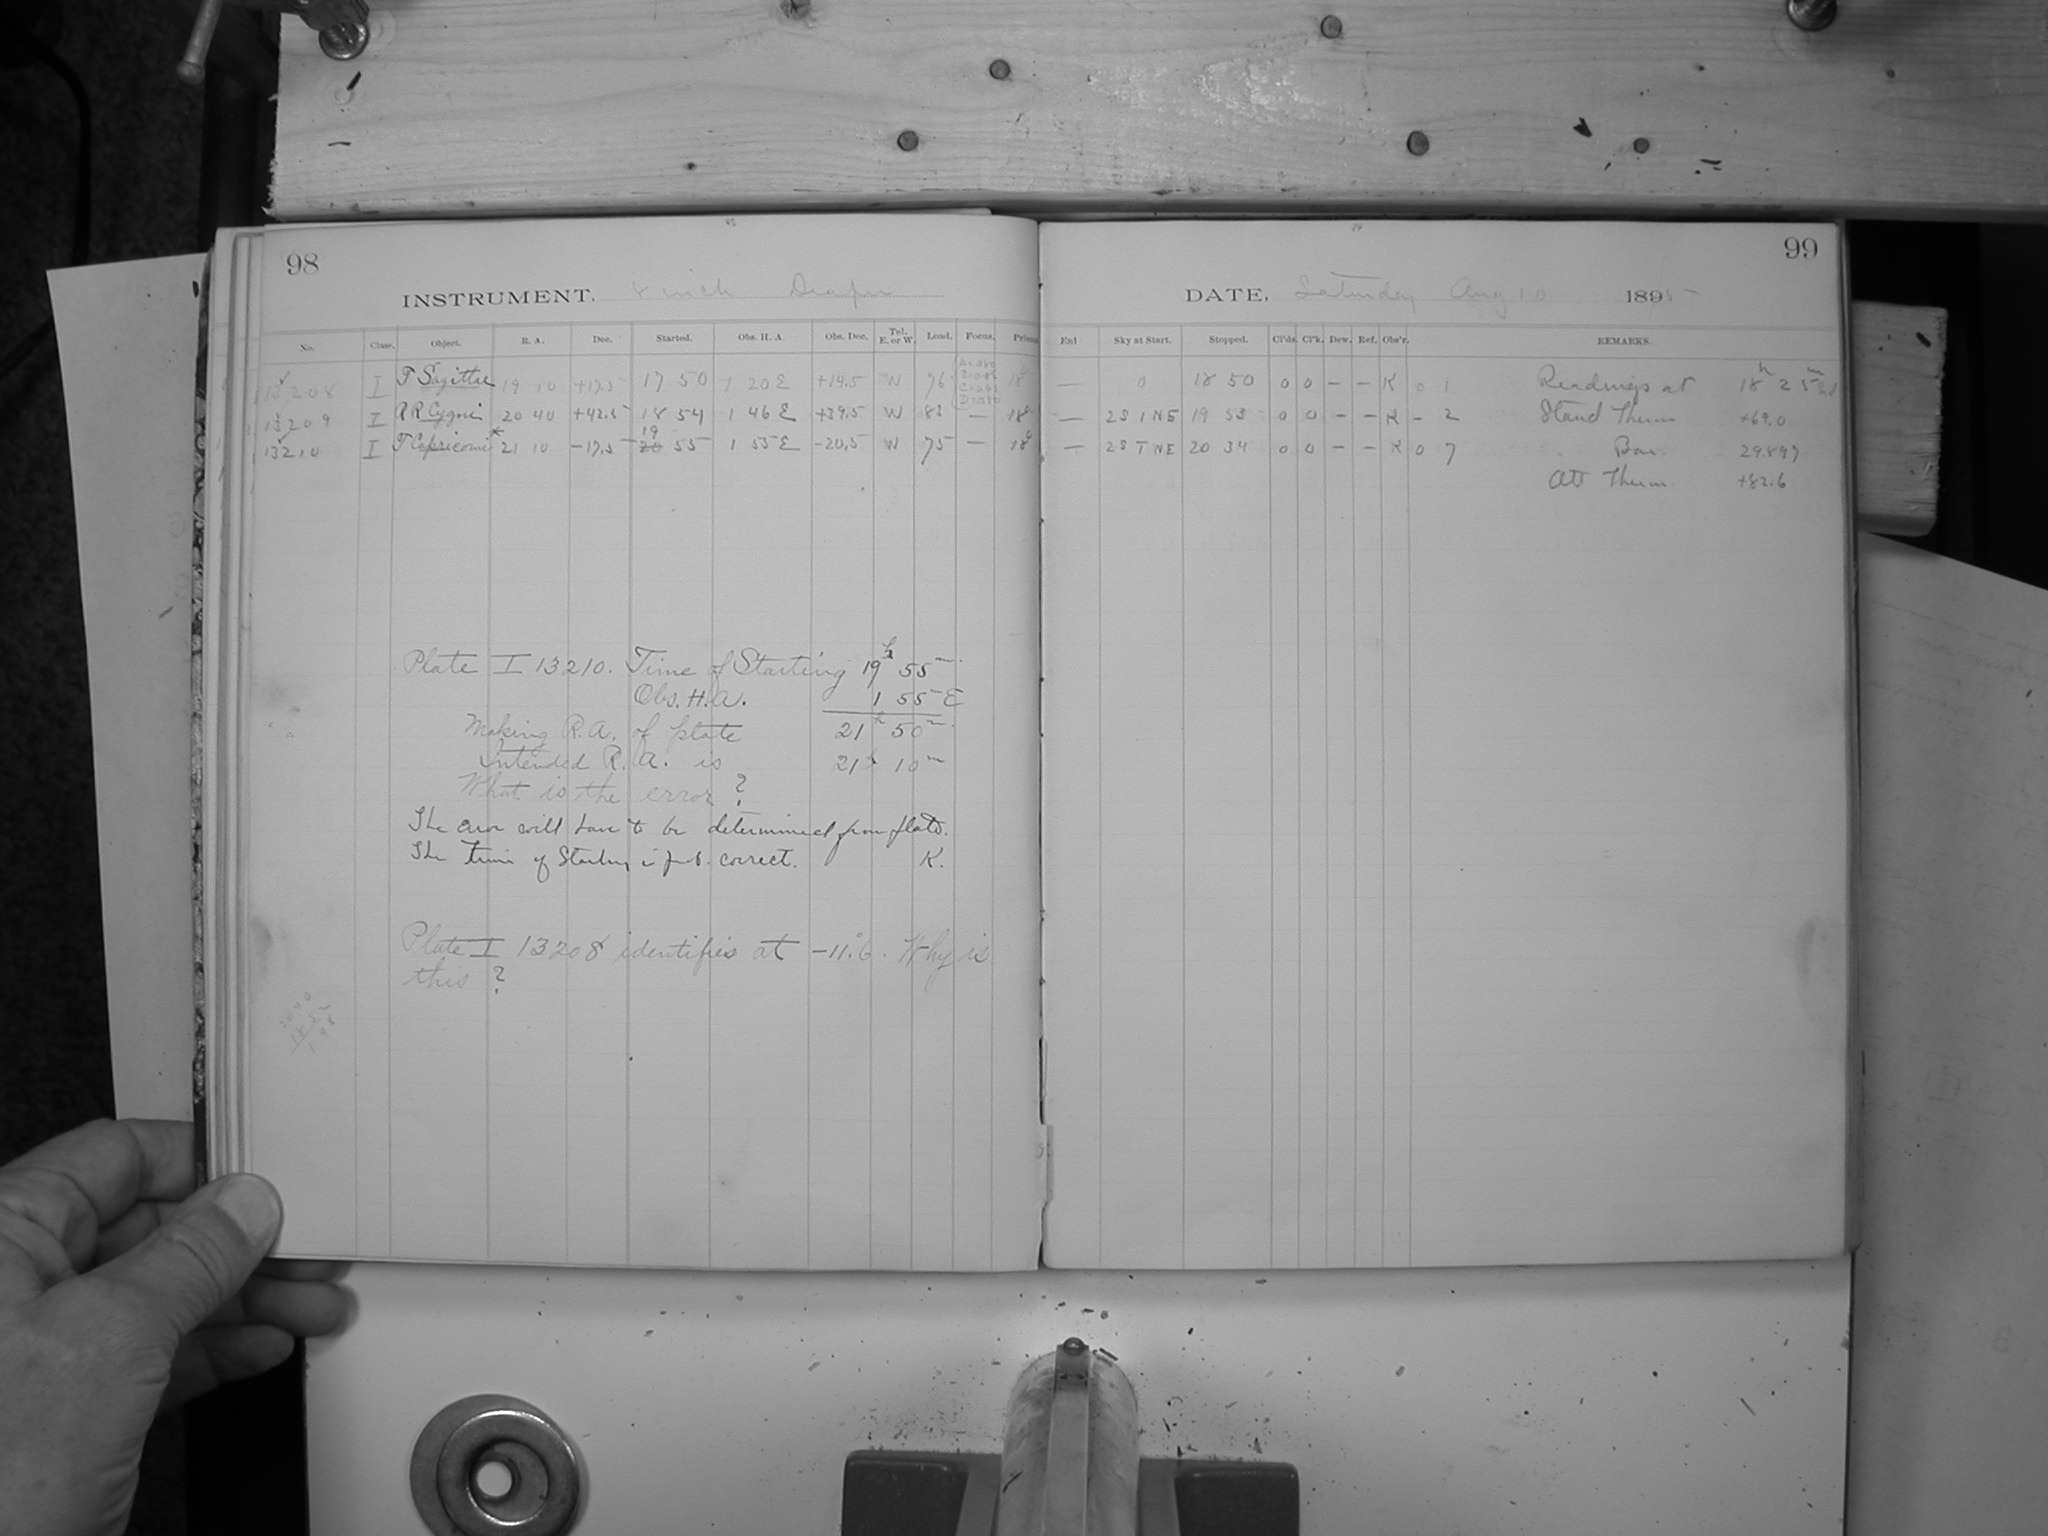 98
INSTRUMENT. 8 inch Draper
No. Class. Object. R. A. Dec. Started. Obs. H. A. Obs. Dec. Tel. E. or W. Load. Focus. Prism
13208 I T Sagittae 19 10 +17.5 17 50 1 20 E +19.5 W 76 18
13209 I RR Cygni 20 40 +42.5 18 54 1 46 E +39.5 W 83 — 18
13210 I T Capricorni* 21 10 −17.5 19 20 55 1 55 E −20.5 W 75 — 18
Plate I 13210. Time of Starting 19h 55m.
Obs. H.A. 1 55 E
Making R.A. of plate 21h 50m.
Intended R.A. is 21h 10m
What is the error?
The error will have to be determined from plate.
The time of Starting is prob. correct. K.
Plate I 13208 identifies at −11°.6. Why is
this?
99
DATE. Saturday Aug 10 1895
Enl Sky at Start. Stopped. Cl'ds. Cl'k. Dew. Ref. Obs'r. REMARKS.
— 0 18 50 0 0 – – K 0 1 Readings at 18h 25m
— 2S 1 NE 19 53 0 0 – – K – 2 Stand Therm +69.0
— 2S T NE 20 34 0 0 – – K 0 7 Bar. 29.897
Att Therm +82.6